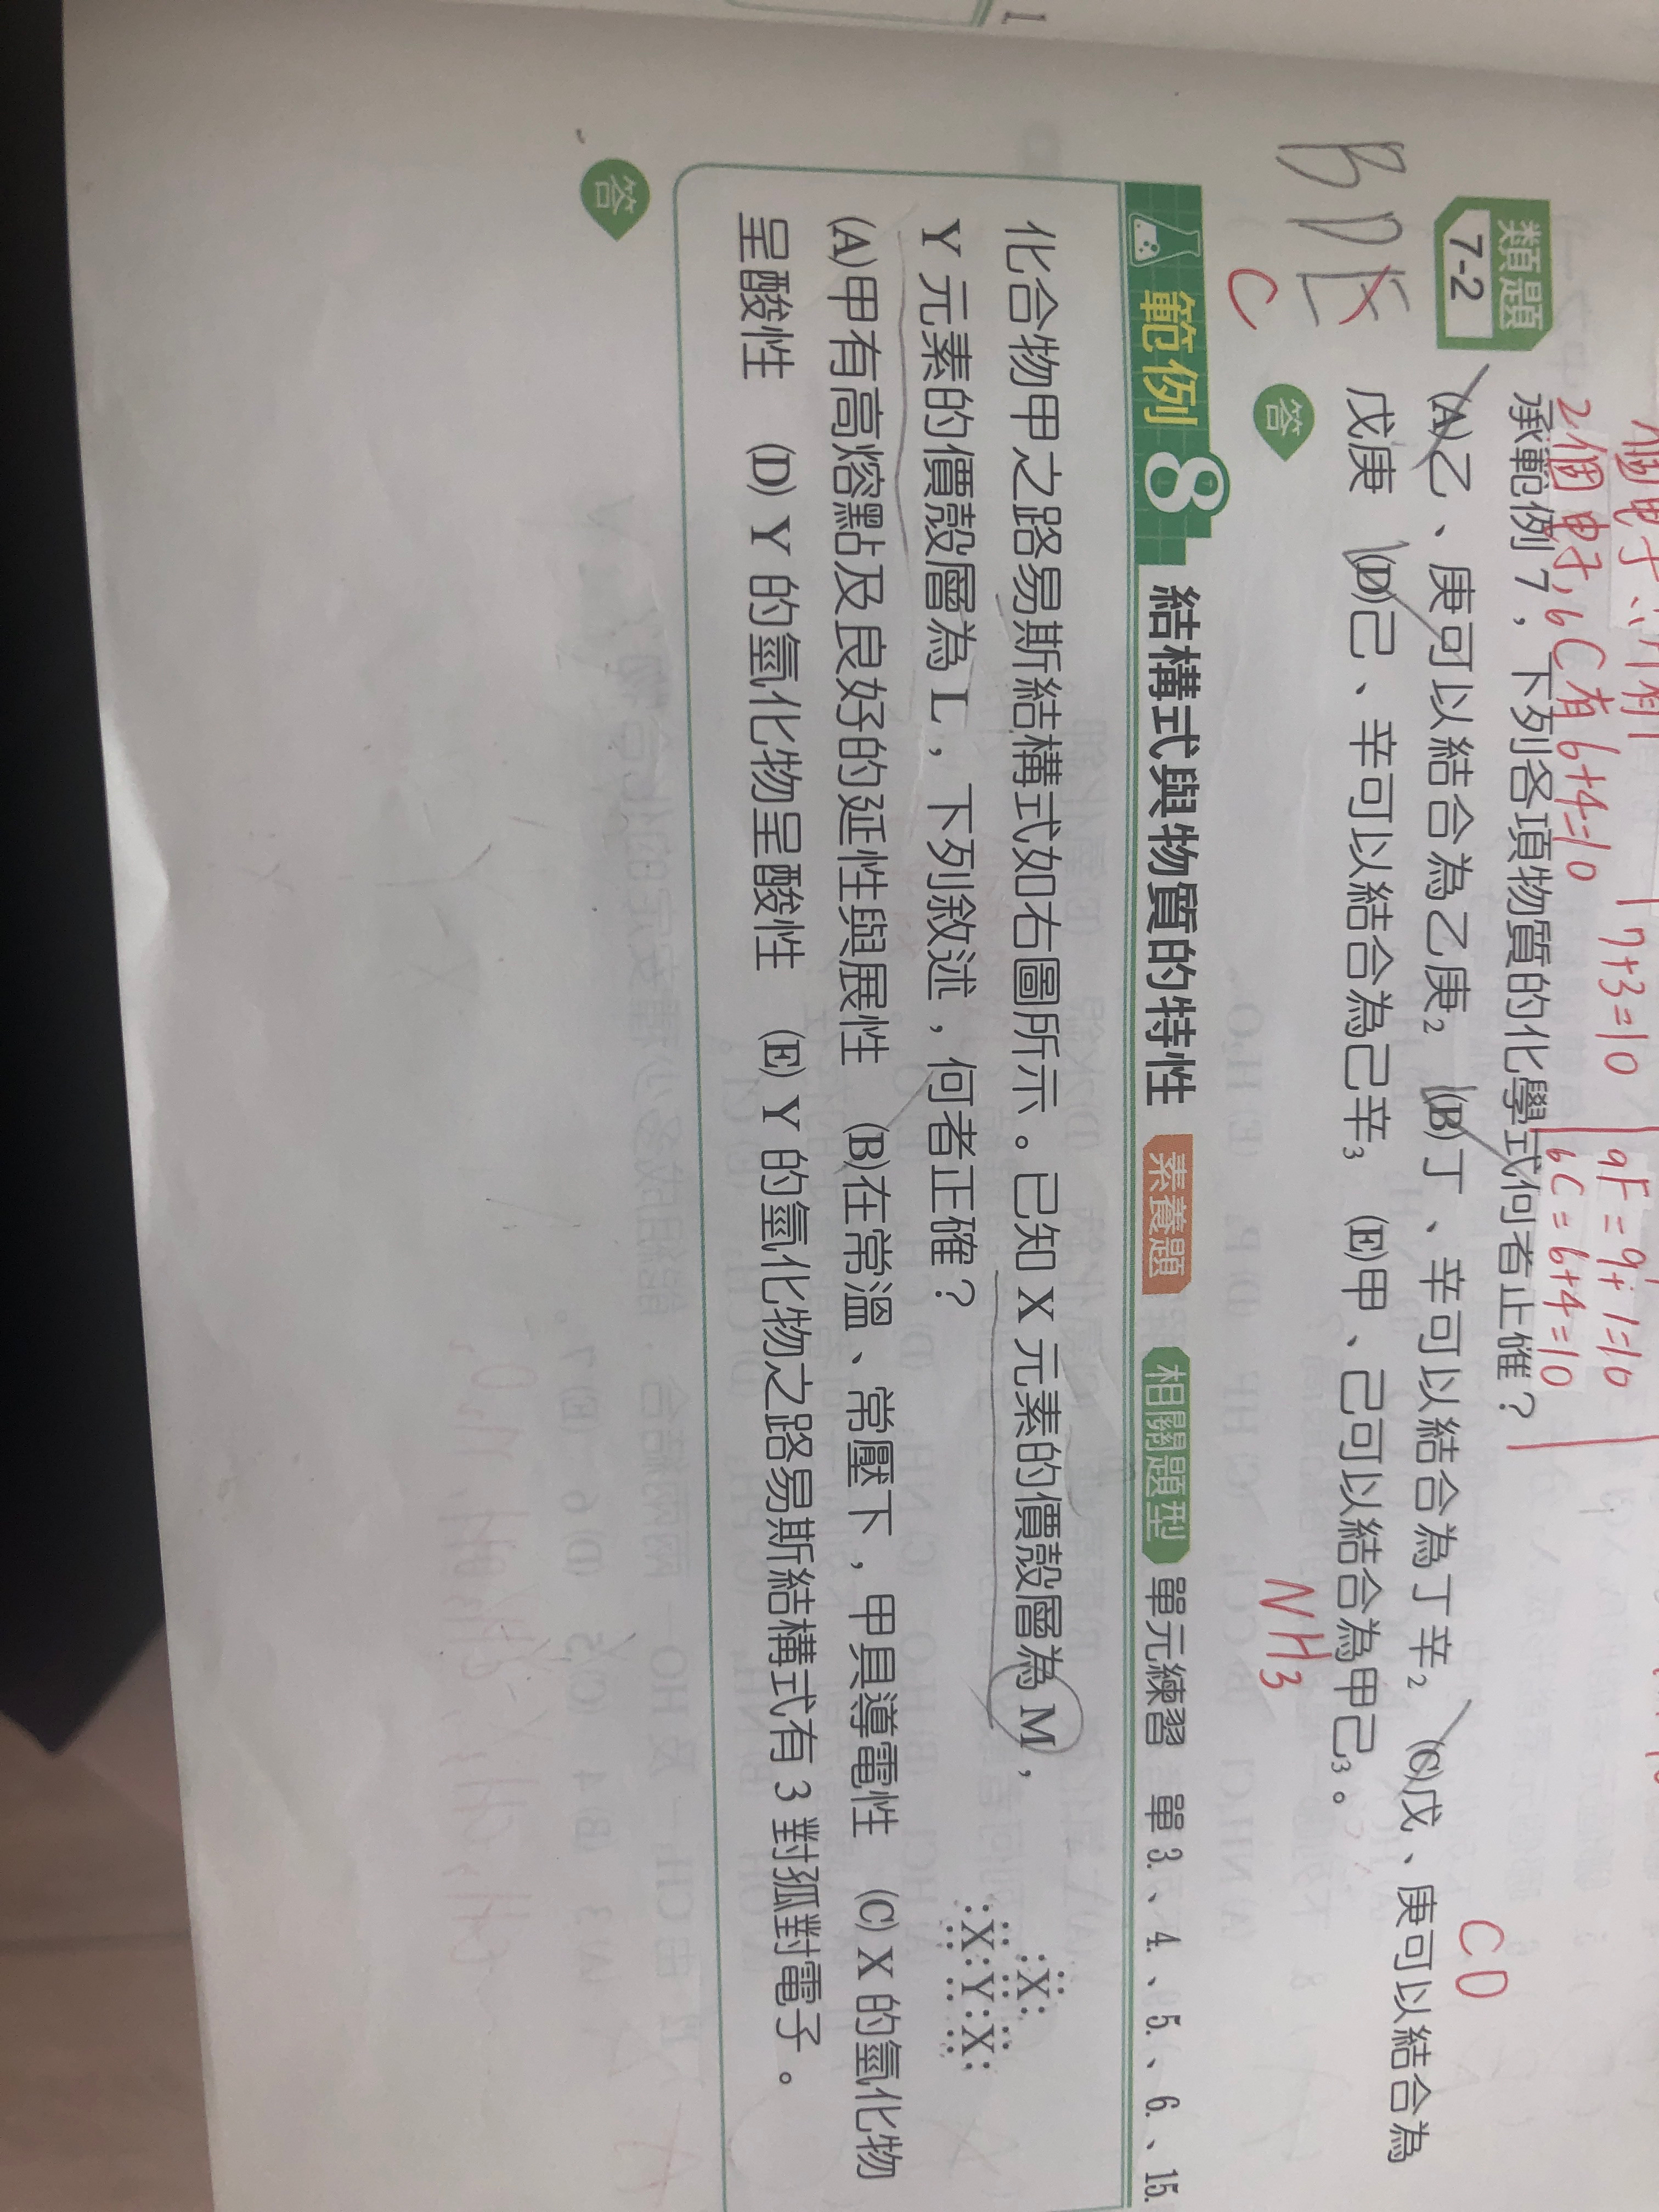 1
個電子
2個電子, 6C有6+4=10
7+3=10
9F=9+1=10
6C=6+4=10
類題
7-2
承範例7，下列各項物質的化學式何者正確？
(A)乙、庚可以結合為乙庚₂ (B)丁、辛可以結合為丁辛₂ (C)戊、庚可以結合為
戊庚 (D)己、辛可以結合為己辛₃ (E)甲、己可以結合為甲己₃。
BDE
C
CD
答
NH₃
範例 8 結構式與物質的特性 素養題 相關題型 單元練習 單 3.、4.、5.、6.、15.
化合物甲之路易斯結構式如右圖所示。已知 X 元素的價殼層為 M，
Y 元素的價殼層為 L，下列敘述，何者正確？
X
X Y X
(A)甲有高熔點及良好的延性與展性 (B)在常溫、常壓下，甲具導電性 (C) X 的氫化物
呈酸性 (D) Y 的氫化物呈酸性 (E) Y 的氫化物之路易斯結構式有 3 對孤對電子。
答